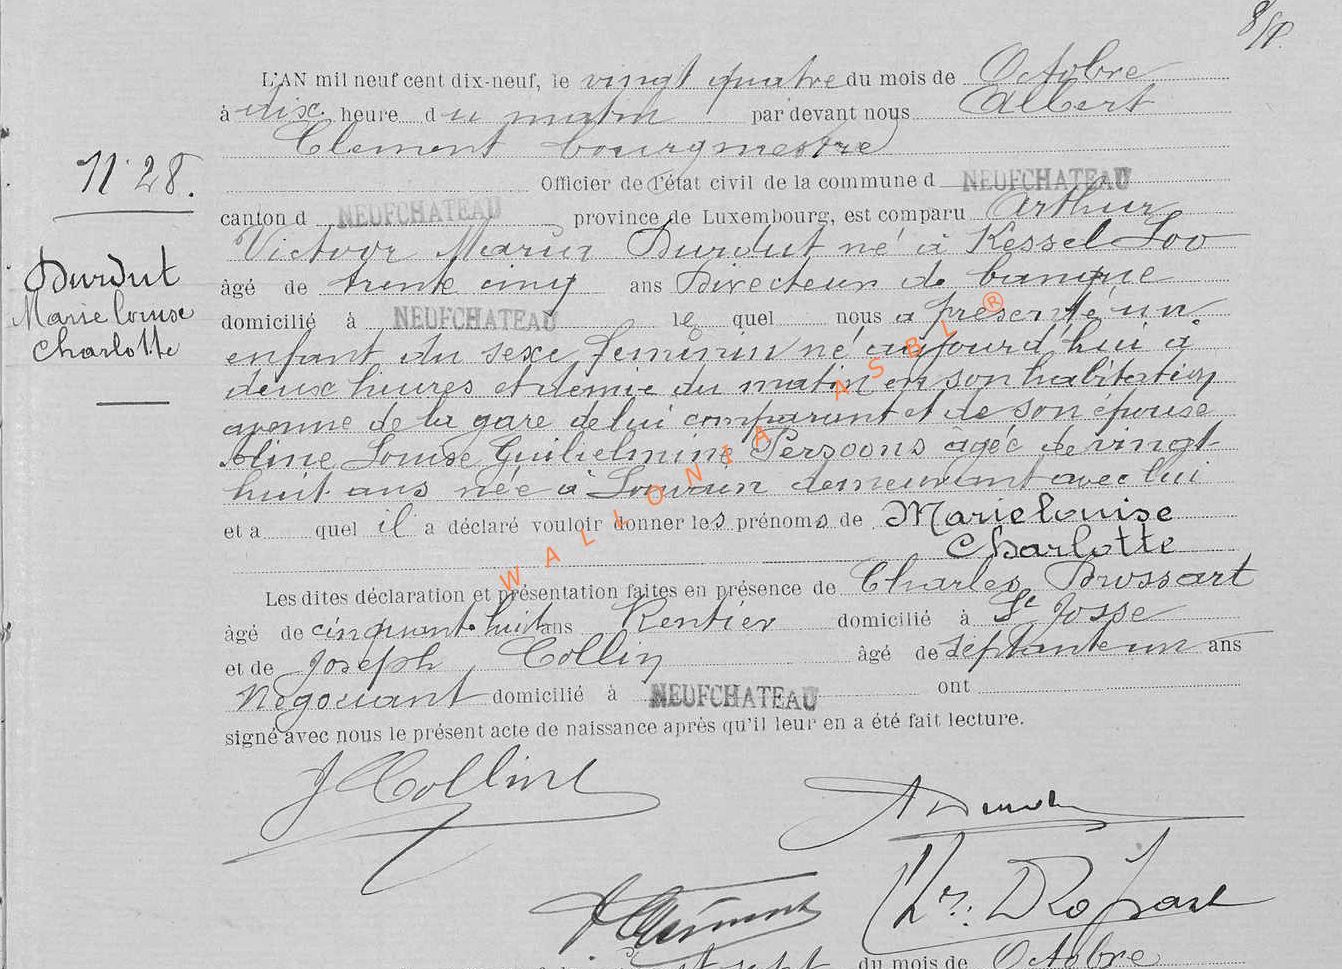 8/S.
L'AN mil neuf cent dix-neuf, le vingt quatre du mois de Octobre
à dix heure du matin par devant nous Albert
Clement bourgmestre
N° 28.
Officier de l'état civil de la commune d NEUFCHATEAU
canton d NEUFCHATEAU province de Luxembourg, est comparu Arthur
Victoor Marie Durdut né à Kessel Loo
Durdut
Marie louise
Charlotte
âgé de trente cinq ans Directeur de banque
domicilié à NEUFCHATEAU lequel nous a présenté un
enfant du sexe feminin né aujourd'hui à
deux heures et demie du matin en son habitation
avenue de la gare de lui comparant et de son épouse
Oline Louise Guilielmine Persoons âgée de vingt
huit ans née à Louvain demeurant avec lui
et a quel il a déclaré vouloir donner les prénoms de Marie louise
Charlotte
Les dites déclaration et présentation faites en présence de Charles Brossart
âgé de cinquante huit ans Rentier domicilié à St Josse
et de Joseph Collin âgé de septante un ans
Négociant domicilié à NEUFCHATEAU ont
signé avec nous le présent acte de naissance après qu'il leur en a été fait lecture.
J Collin
A Clement
du mois de Octobre
WALLONIA ASBL ®